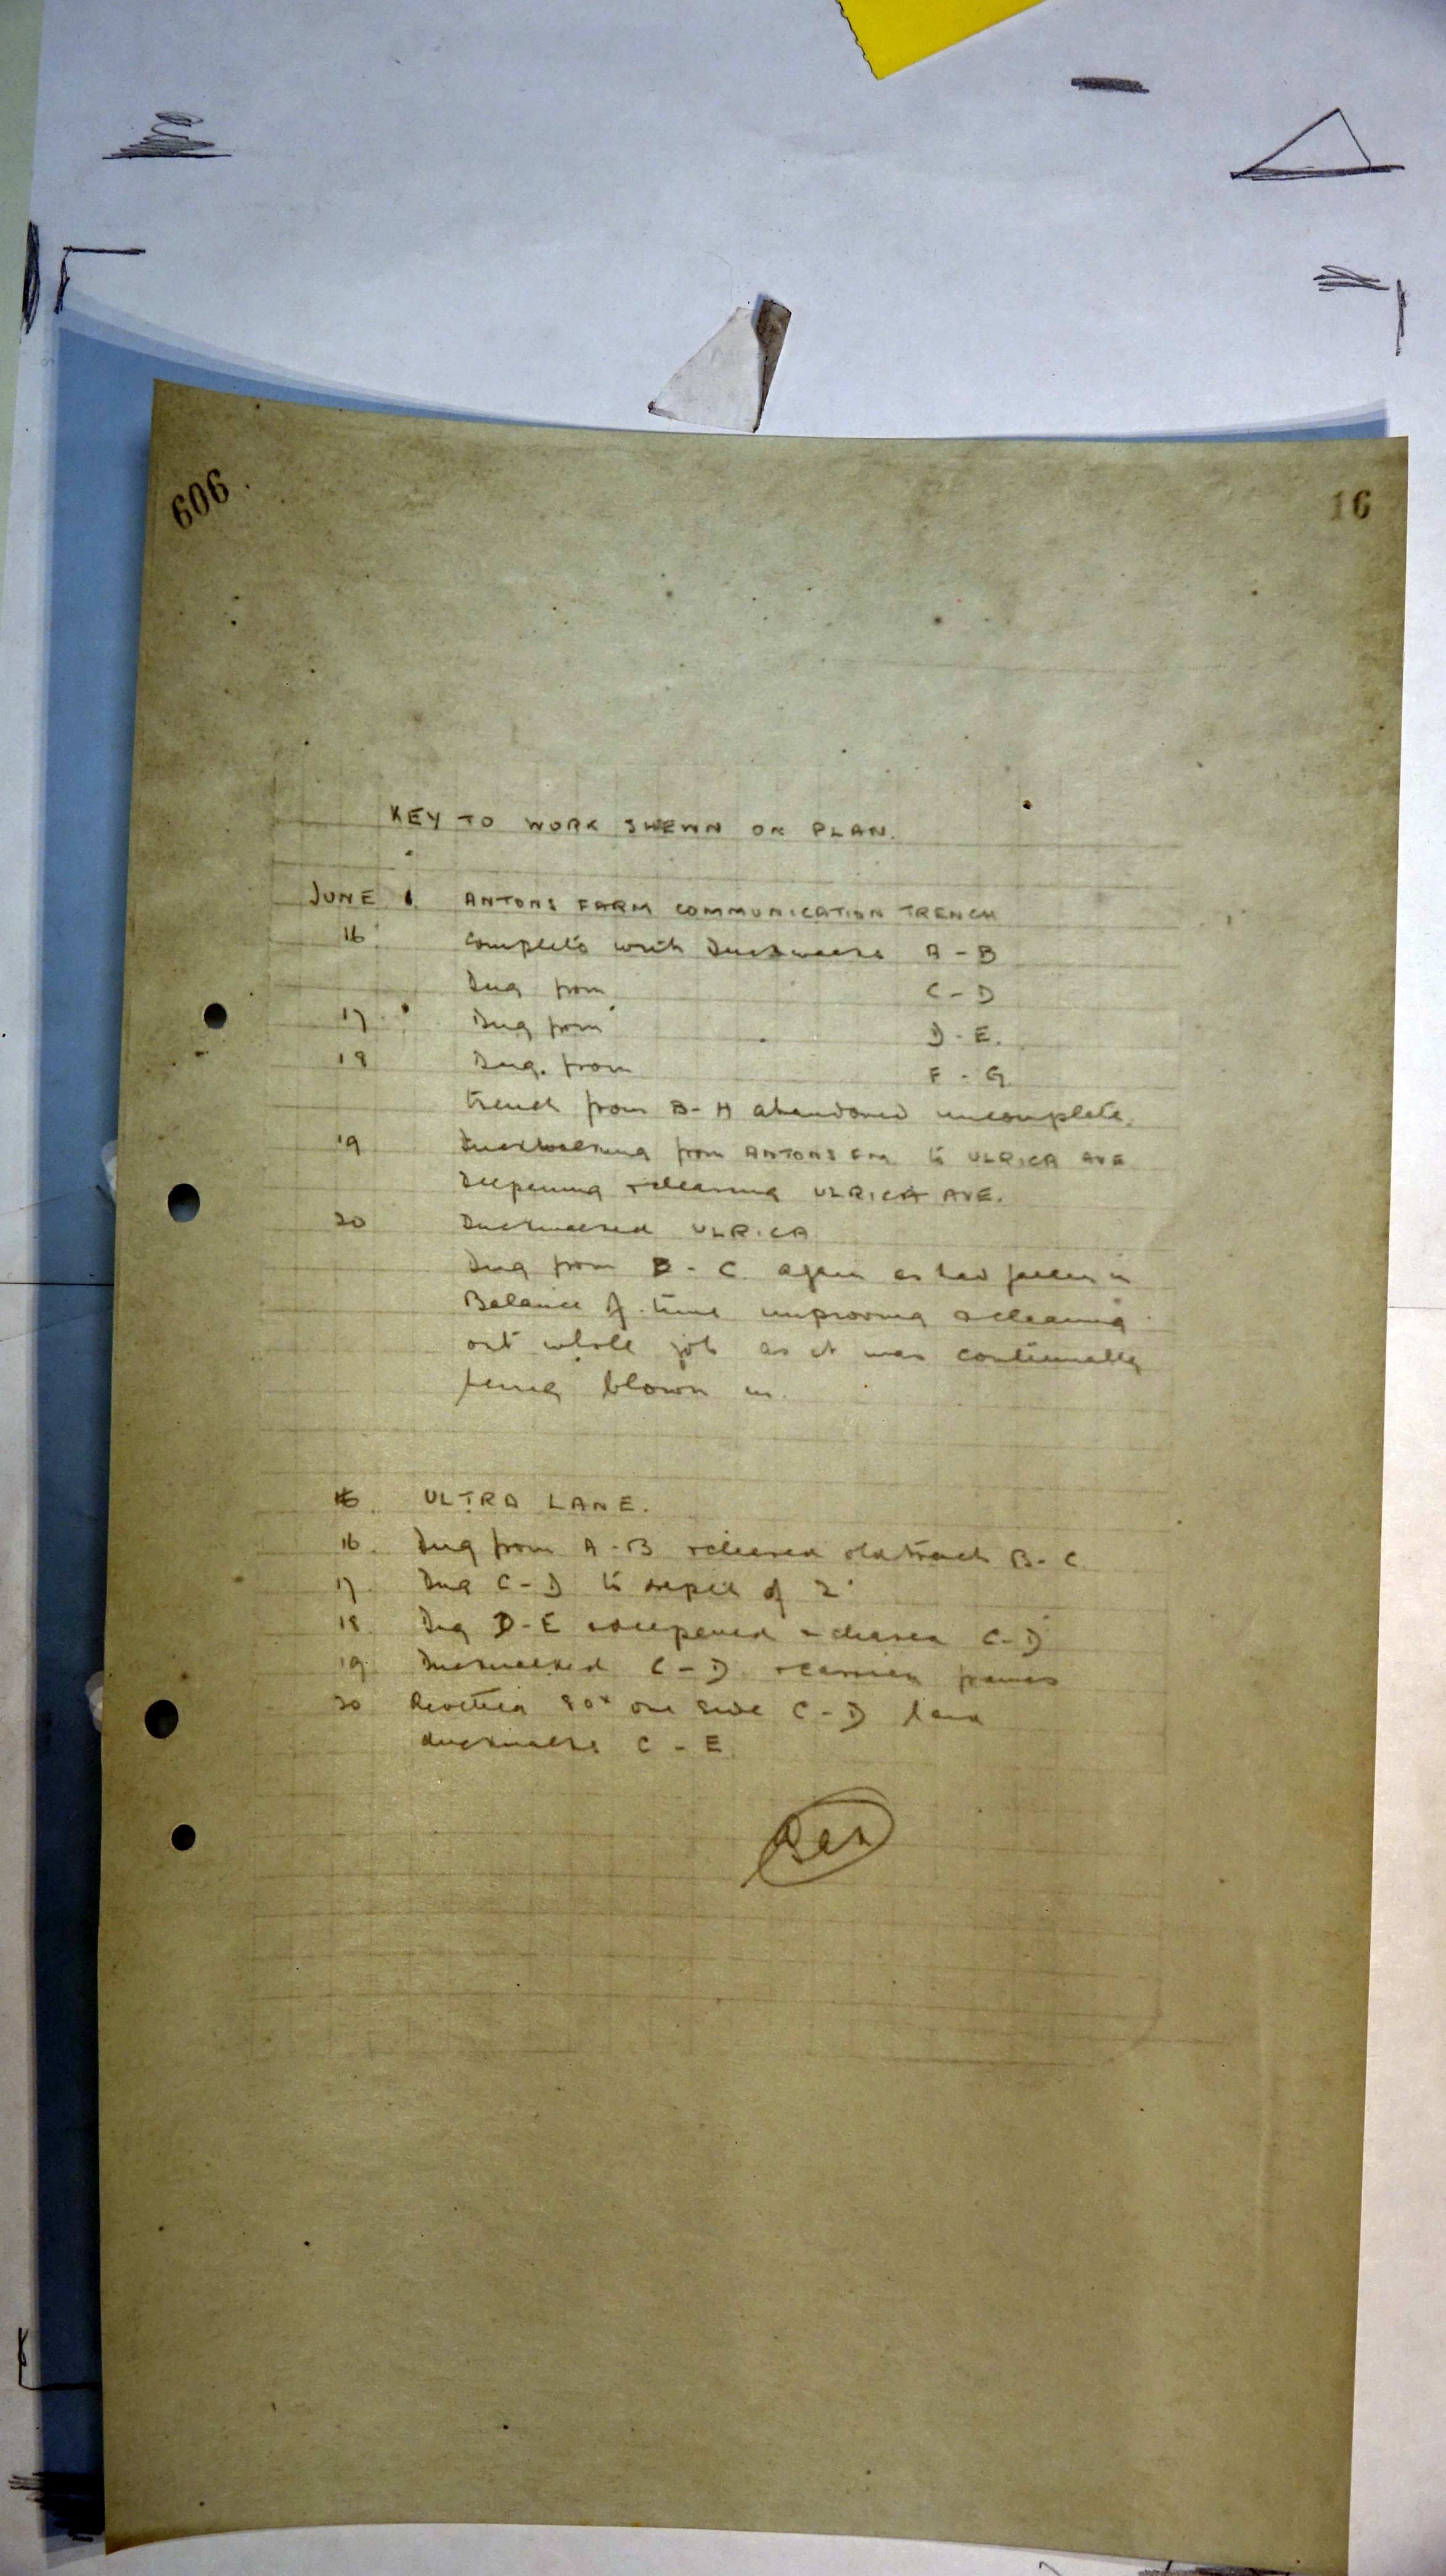 606
16
KEY TO WORK SHEWN ON PLAN.
JUNE ANTONS FARM COMMUNICATION TRENCH
16 Complete with Duckwalks A - B
Dug from C - D
17 Dug from D - E.
18 Dug. from F - G
trench from B - H abandoned uncomplete.
19 Duckwalking from ANTONS FM. to ULRICA AVE
Deepening & cleaning ULRICA AVE.
20 Duckwalked ULRICA
Dug from B - C again as had fallen in
Balance of time improving & cleaning
out whole job as it was continually
being blown in.
16 ULTRA LANE.
16. Dug from A - B & cleared old trench B - C
17 Dug C - D to depth of 2'
18. Dug D - E & deepened & cleared C - D
19 Duckwalked C - D & carried frames
20 Revetted 80x one side C - D & laid
duckwalks C - E